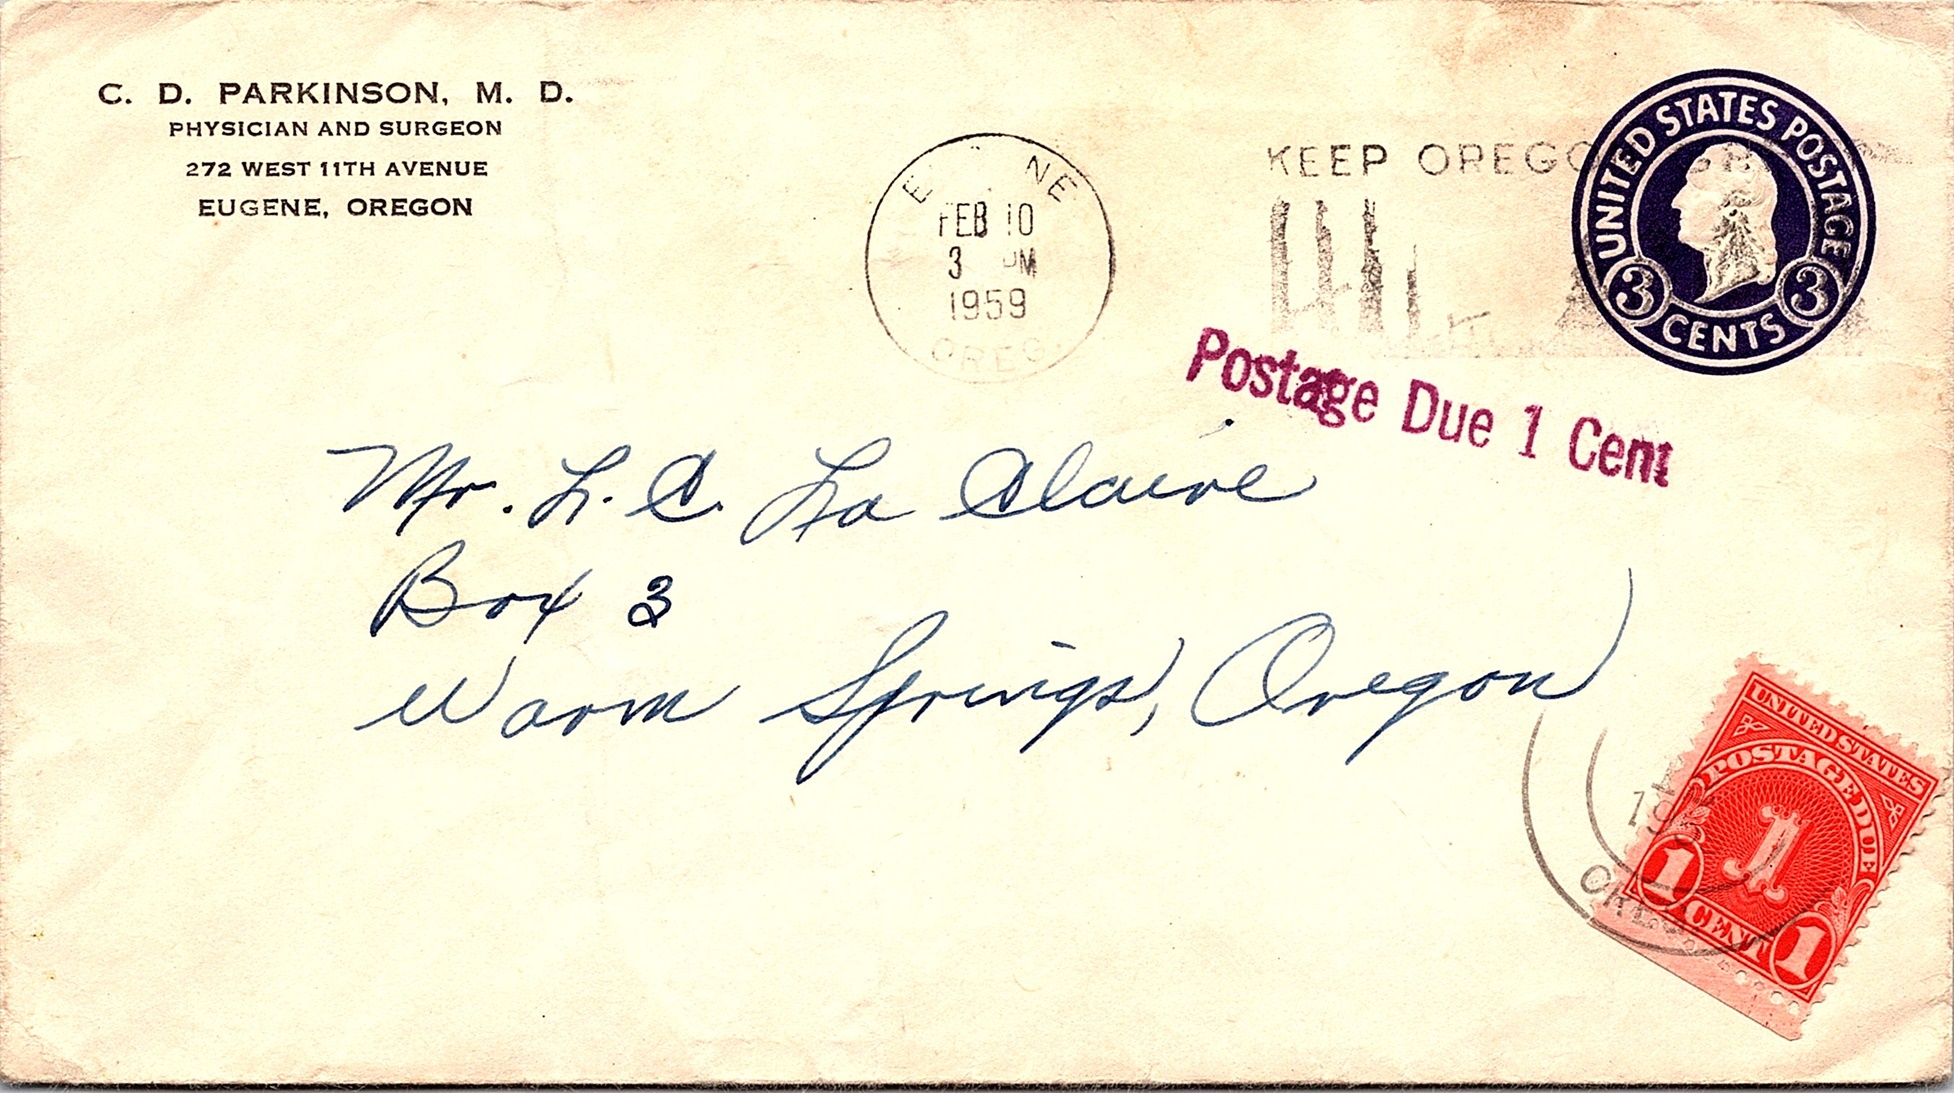 C. D. PARKINSON, M. D.
PHYSICIAN AND SURGEON
272 WEST 11TH AVENUE
EUGENE, OREGON
FEB 10
3 PM
1959
OREG.
KEEP
UNITED STATES POSTAGE
3 3
CENTS
Postage Due 1 Cent
Mr. L. C. La Claire
Box 3
Warm Springs, Oregon
UNITED STATES
POSTAGE DUE
1
1 CENT 1